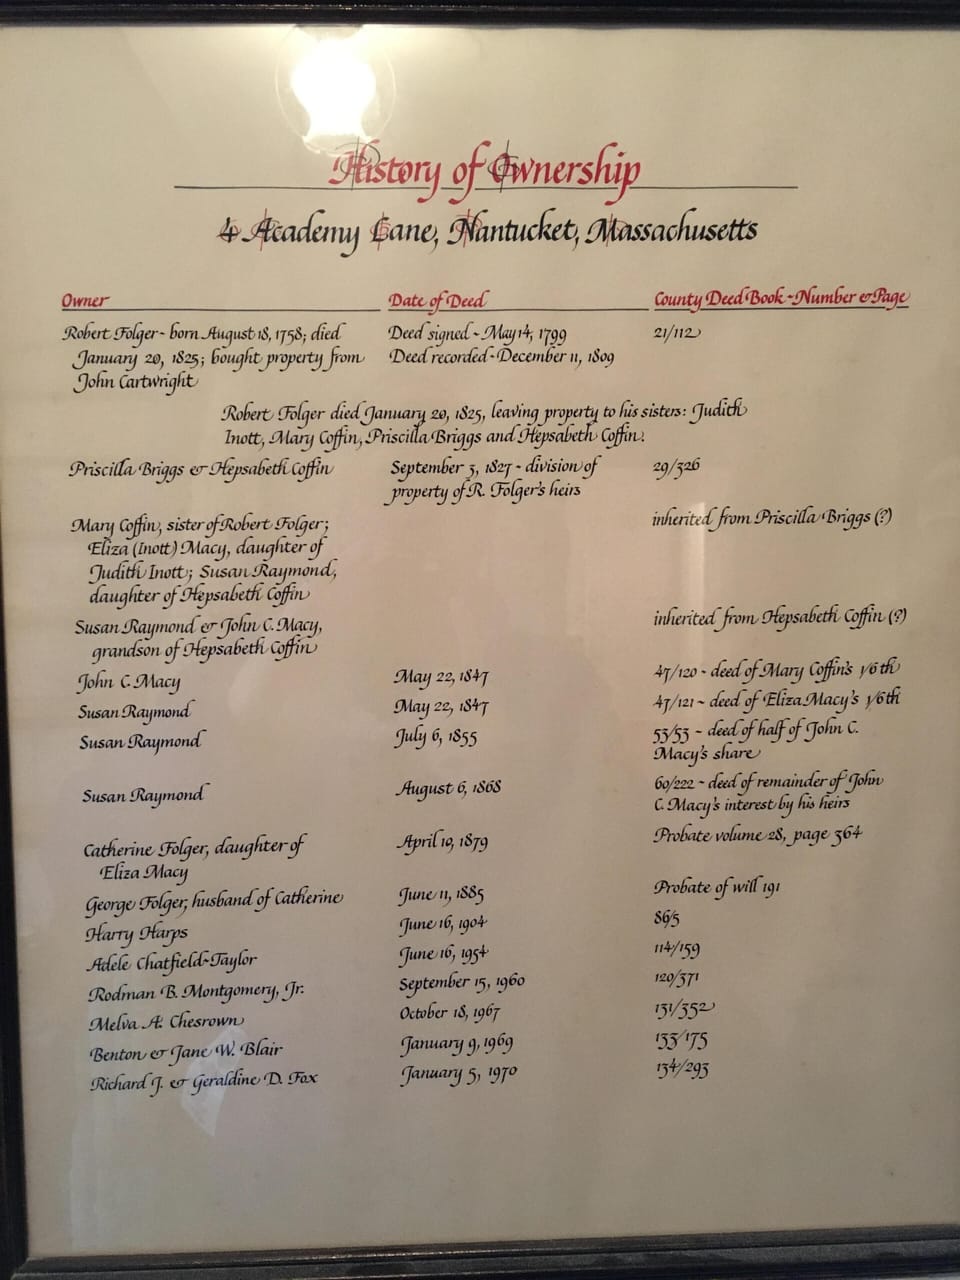 History of Ownership
4 Academy Lane, Nantucket, Massachusetts
Owner Date of Deed County Deed Book ~ Number & Page
Robert Folger ~ born August 18, 1758; died Deed signed ~ May 14, 1799 21/112
January 20, 1825; bought property from Deed recorded ~ December 11, 1809
John Cartwright
Robert Folger died January 20, 1825, leaving property to his sisters: Judith
Inott, Mary Coffin, Priscilla Briggs and Hepsabeth Coffin.
Priscilla Briggs & Hepsabeth Coffin September 3, 1827 ~ division of 29/326
property of R. Folger's heirs
Mary Coffin, sister of Robert Folger; inherited from Priscilla Briggs (?)
Eliza (Inott) Macy, daughter of
Judith Inott; Susan Raymond,
daughter of Hepsabeth Coffin
Susan Raymond & John C. Macy, inherited from Hepsabeth Coffin (?)
grandson of Hepsabeth Coffin
John C. Macy May 22, 1847 47/120 ~ deed of Mary Coffin's 1/6th
Susan Raymond May 22, 1847 47/121 ~ deed of Eliza Macy's 1/6th
Susan Raymond July 6, 1855 53/53 ~ deed of half of John C.
Macy's share
Susan Raymond August 6, 1868 60/222 ~ deed of remainder of John
C. Macy's interest by his heirs
Catherine Folger, daughter of April 10, 1879 Probate volume 28, page 364
Eliza Macy
George Folger, husband of Catherine June 11, 1885 Probate of will 191
Harry Harps June 16, 1904 86/5
Adele Chatfield~Taylor June 16, 1954 114/159
Rodman B. Montgomery, Jr. September 15, 1960 120/371
Melva A. Chesrown October 18, 1967 131/352
Benton & Jane W. Blair January 9, 1969 133/175
Richard J. & Geraldine D. Fox January 5, 1970 134/293